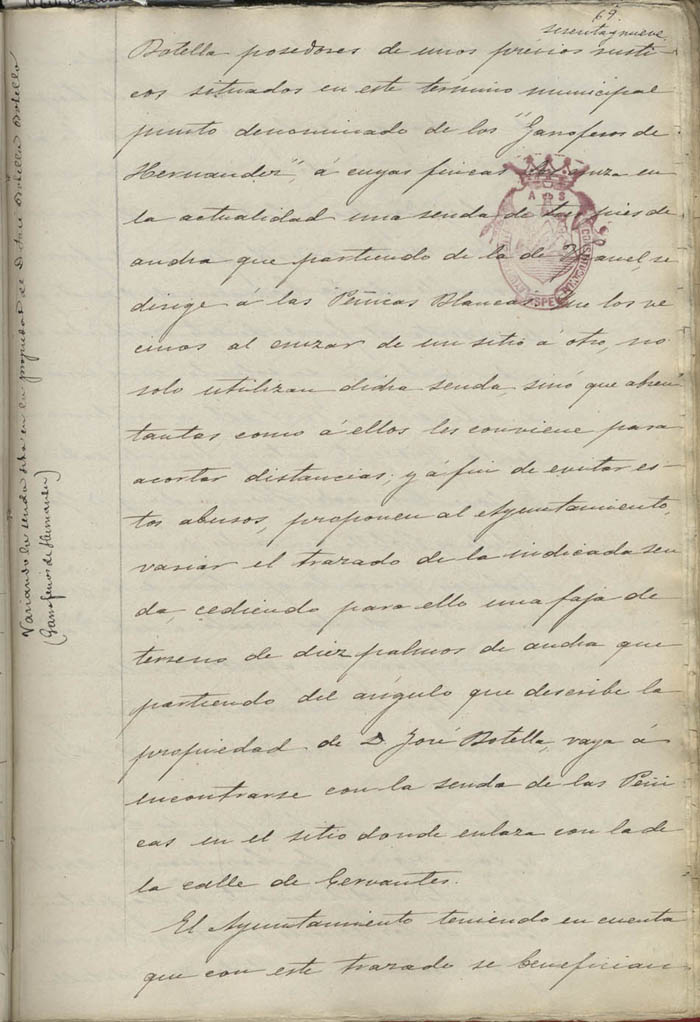 69.
sesenta y nueve
Botella posedores de unos previos rusti-
cos situados en este término municipal
punto denominado de los "Garroferos de
Hernandez", á cuyas fincas cruza en
la actualidad una senda de tres pies de
ancha que partiendo de la de se
dirige á las Peñicas Blancas que los ve
cinos al cruzar de un sitio á otro, no
solo utilizan dicha senda, sinó que abren
tantas como á ellos les conviene para
acortar distancias; y á fin de evitar es-
tos abusos, proponen al Ayuntamiento,
variar el trazado de la indicada sen
da, cediendo para ello una faja de
terreno de diez palmos de ancha que
partiendo del ángulo que describe la
propiedad de D. José Botella, vaya á
encontrarse con la senda de las Peñi
cas en el sitio donde enlaza con la de
la calle de Cervantes.
El Ayuntamiento teniendo en cuenta
que con este trazado se benefician
Variando la senda sita en la propiedad de D. José Botella Botella
(Garroferos de Hernandez)
A S